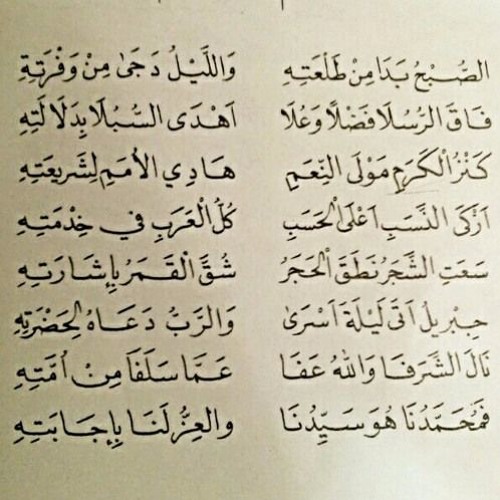 الصُّبْحُ بَدَا مِنْ طَلْعَتِهِ وَاللَّيْلُ دَجَىٰ مِنْ وَفْرَتِهِ
فَاقَ الرُّسُلَا فَضْلًا وَعُلَا اَهْدَى السُّبُلَا بِدَلَالَتِهِ
كَنْزُ الْكَرَمِ مَوْلَى النِّعَمِ هَادِي الْأُمَمِ لِشَرِيعَتِهِ
اَزْكَى النَّسَبِ اَعْلَى الْحَسَبِ كُلُّ الْعَرَبِ فِي خِدْمَتِهِ
سَعَتِ الشَّجَرُ نَطَقَ الْحَجَرُ شُقَّ الْقَمَرُ بِإِشَارَتِهِ
جِبْرِيلُ اَتَى لَيْلَةَ اَسْرَىٰ وَالرَّبُّ دَعَاهُ لِحَضْرَتِهِ
نَالَ الشَّرَفَا وَاللّٰهُ عَفَا عَمَّا سَلَفَا مِنْ اُمَّتِهِ
فَمُحَمَّدُنَا هُوَ سَيِّدُنَا وَالْعِزُّ لَنَا بِإِجَابَتِهِ